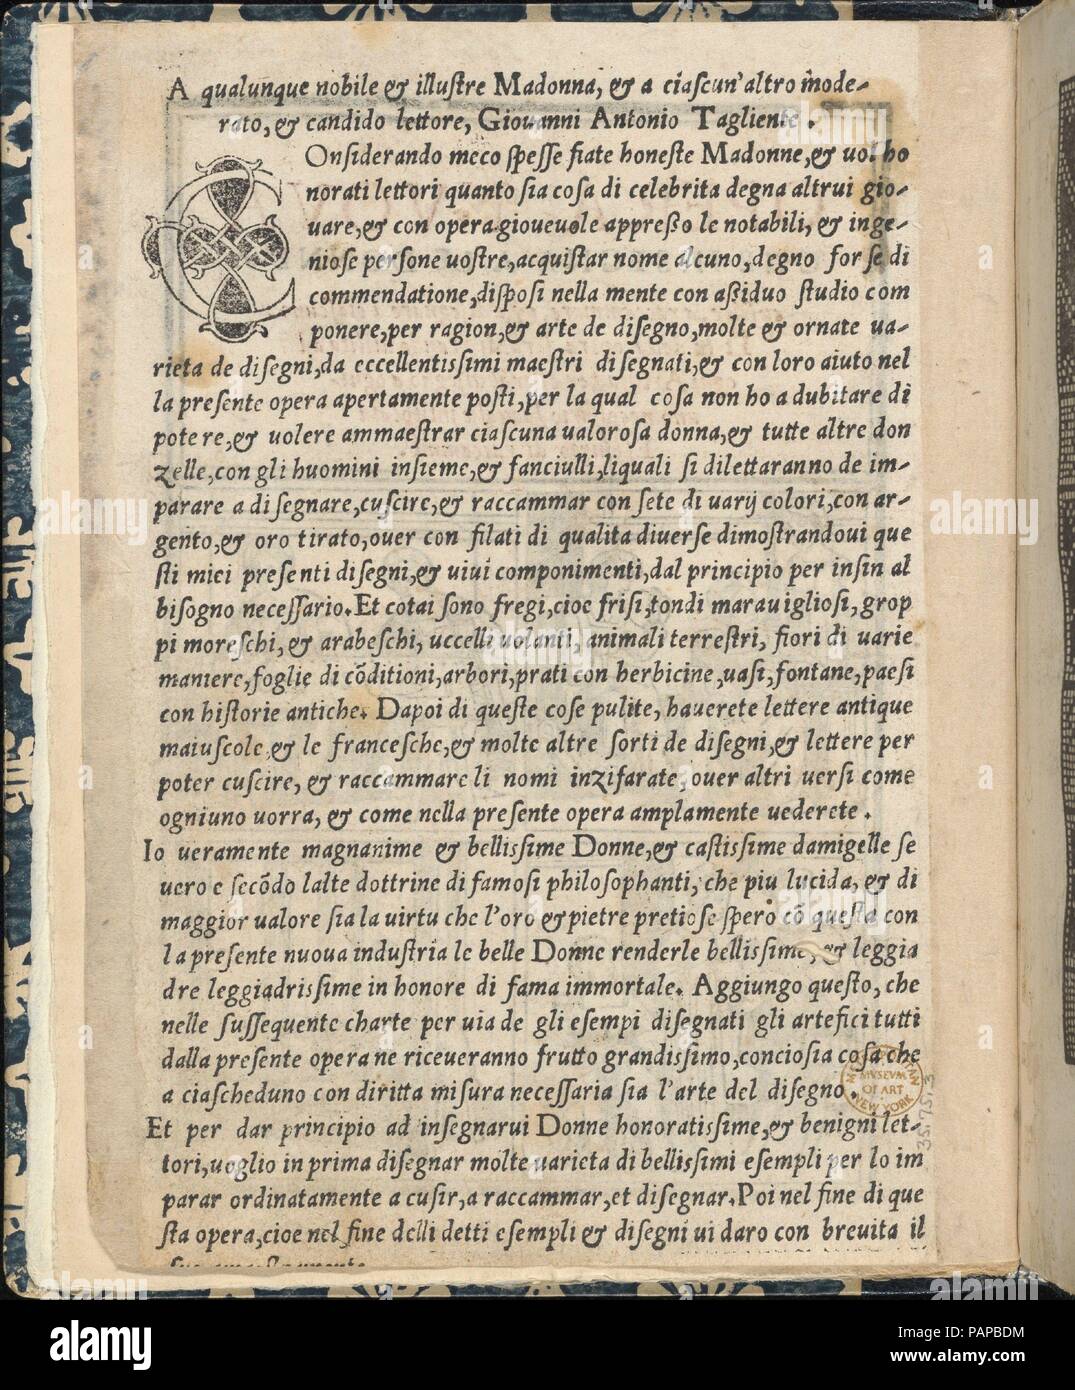 A qualunque nobile & illuſtre Madonna, & a ciaſcun'altro mode-
rato, & candido lettore, Giouanni Antonio Tagliente .
COnſiderando meco ſpeſſe fiate honeſte Madonne, & uoi ho
norati lettori quanto ſia coſa di celebrita degna altrui gio-
uare, & con opera gioueuole appreßo le notabili, & inge-
nioſe perſone uoſtre, acquiſtar nome alcuno, degno forſe di
commendatione, diſpoſi nella mente con aßiduo ſtudio com
ponere, per ragion, & arte de diſegno, molte & ornate ua-
rieta de diſegni, da eccellentisſimi maeſtri diſegnati, & con loro aiuto nel
la preſente opera apertamente poſti, per la qual coſa non ho a dubitare di
potere, & uolere ammaeſtrar ciaſcuna ualoroſa donna, & tutte altre don
zelle, con gli huomini inſieme, & fanciulli, liquali ſi dilettaranno de im-
parare a diſegnare, cuſcire, & raccammar con ſete di uarij colori, con ar-
gento, & oro tirato, ouer con filati di qualita diuerſe dimoſtrandoui que
ſti miei preſenti diſegni, & uiui componimenti, dal principio per inſin al
biſogno neceſſario. Et cotai ſono fregi, cioe friſi, tondi marauiglioſi, grop
pi moreſchi, & arabeſchi, uccelli uolanti, animali terreſtri, fiori di uarie
maniere, foglie di cõditioni, arbori, prati con herbicine, uaſi, fontane, paeſi
con hiſtorie antiche. Dapoi di queſte coſe pulite, hauerete lettere antique
maiuſcole, & le franceſche, & molte altre ſorti de diſegni, & lettere per
poter cuſcire, & raccammare li nomi inzifarate, ouer altri uerſi come
ogniuno uorra, & come nella preſente opera amplamente uederete .
Io ueramente magnanime & bellisſime Donne, & caſtisſime damigelle ſe
uero e ſecõdo lalte dottrine di famoſi philoſophanti, che piu lucida, & di
maggior ualore ſia la uirtu che l'oro & pietre pretioſe ſpero cõ queſta con
la preſente nuoua induſtria le belle Donne renderle bellisſime, & leggia
dre leggiadrisſime in honore di fama immortale. Aggiungo queſto, che
nelle ſuſſequente charte per uia de gli eſempi diſegnati gli artefici tutti
dalla preſente opera ne riceueranno frutto grandisſimo, concioſia coſa che
a ciaſcheduno con diritta miſura neceſſaria ſia l'arte del diſegno .
Et per dar principio ad inſegnarui Donne honoratisſime, & benigni let-
tori, uoglio in prima diſegnar molte uarieta di bellisſimi eſempli per lo im
parar ordinatamente a cuſir, a raccammar, et diſegnar. Poi nel fine di que
ſta opera, cioe nel fine delli detti eſempli & diſegni ui daro con breuita il
MUSEUM
OF ART
NEW YORK
35.75.3
alamy
Image ID: PAPBDM
www.alamy.com